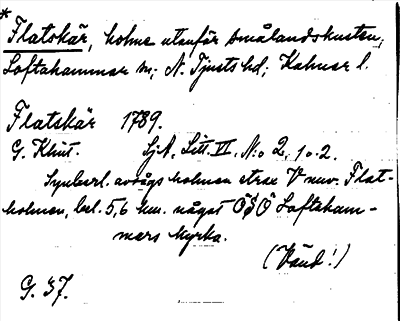 * Flatskär, holme utanför Smålandskusten;
Loftahammar sn; N. Tjusts hd; Kalmar l.
Flatskär 1789.
G. Klint. Sj.A. Litt. VI. N:o 2, 1 o. 2.
Synbarl. avsågs holmen strax V nuv. Flat-
holmen, bel. 5,6 km. något ÖSÖ Loftaham-
mars kyrka.
(Vänd!)
G. 37.